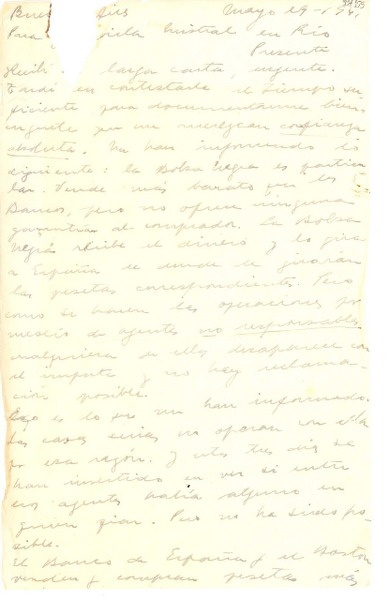 Mayo 29-1941
Para Gabriela Mistral en Río
Presente
larga carta, urgente.
Tardé en contestarle el tiempo su
ficiente para documentarme bien
gente que me merezcan confianza
absoluta. Me han informado lo
siguiente: la Bolsa Negra es particu
lar. Vende más barato que los
Bancos, pero no ofrece ninguna
garantía al comprador. La Bolsa
Negra recibe el dinero y lo gira
a España de donde le girarán
las pesetas correspondientes. Pero
como se hacen las operaciones por
medio de agentes no responsables
cualquiera de ellos desaparece con
el importe y no hay reclama-
ción posible.
Esto es lo que me han informado.
Las casas serias no operan con ella
por esa razón. Y estos tres días se
han invertido en ver si entre
esos agentes había alguno en
quien fiar. Pero no ha sido po-
sible.
El Banco de España y el Boston
venden y compran pesetas más